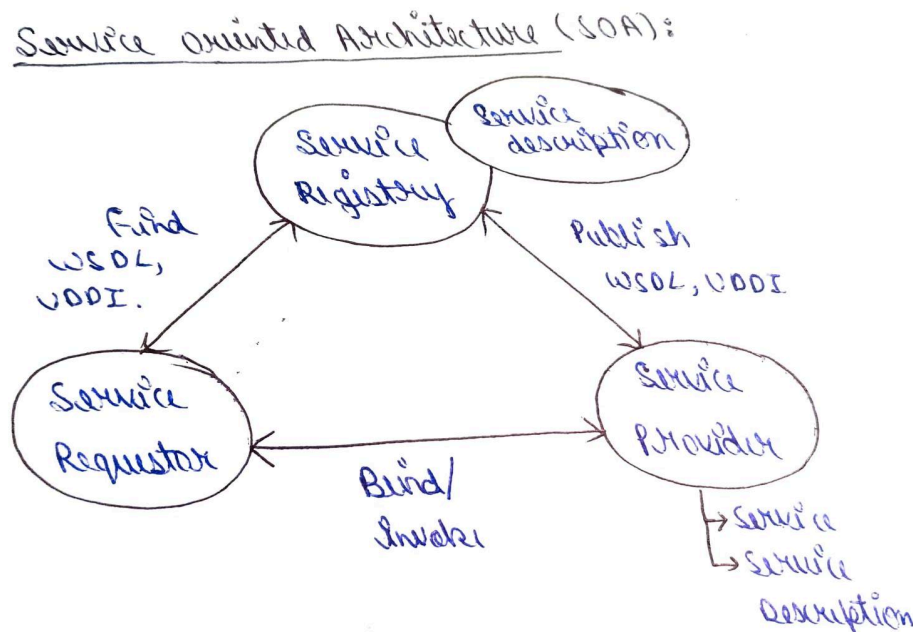 Service oriented Architecture (SOA):
Service
description
Service
Registry
Find
WSDL,
UDDI.
Publish
WSDL, UDDI
Service
Requestor
Service
Provider
Bind/
Invoke
Service
Service
Description